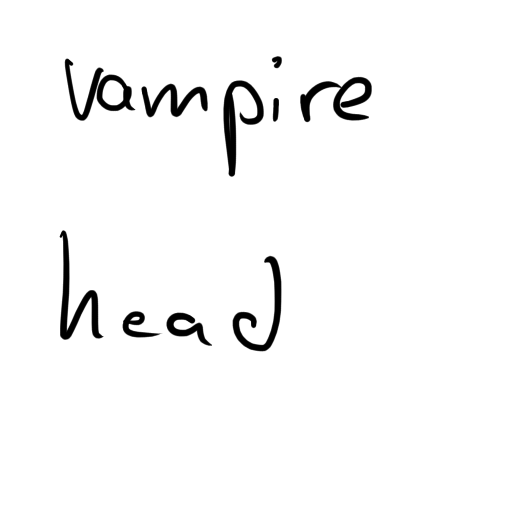 vampire
head